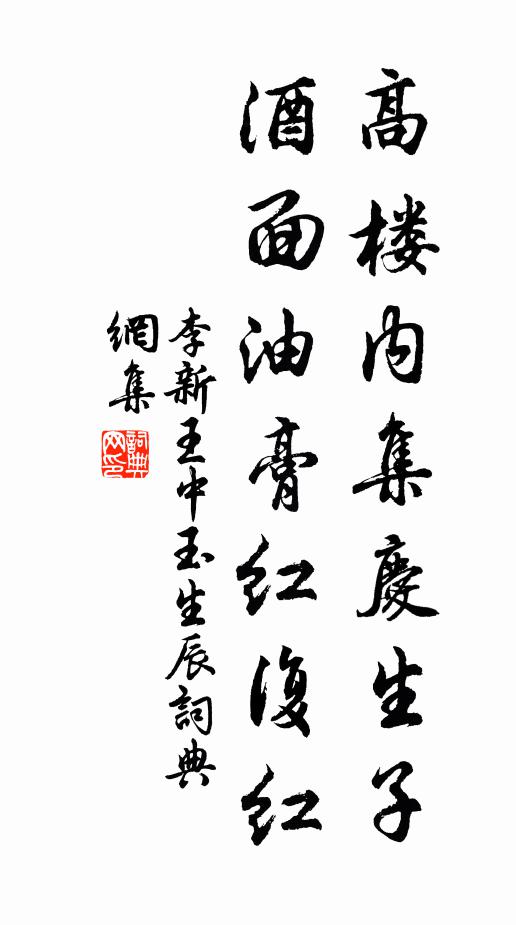 高楼内集慶生子
酒面油膏红復红
李新王中玉生辰詞典
網集
詞典
网印